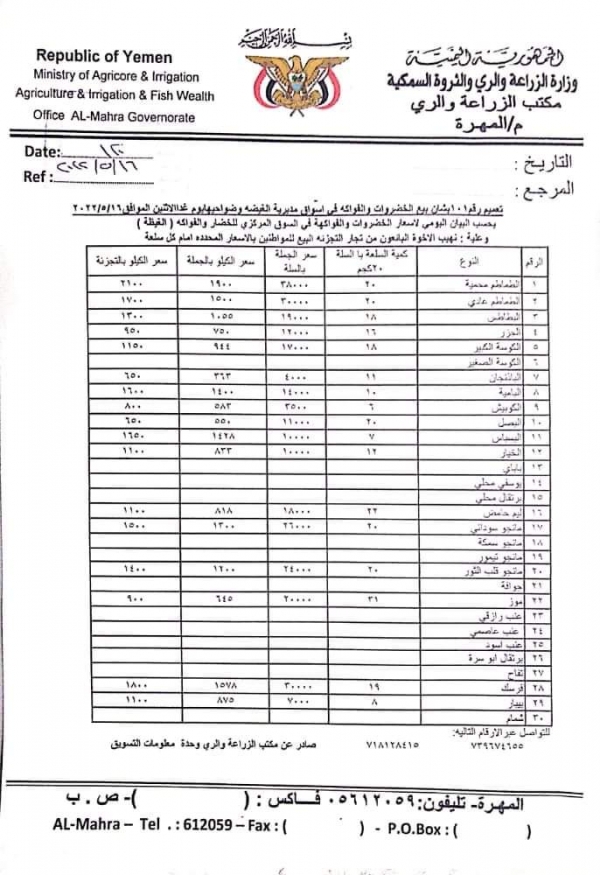 بسم الله الرحمن الرحيم
Republic of Yemen
Ministry of Agricore & Irrigation
Agriculture & Irrigation & Fish Wealth
Office AL-Mahra Governorate
الجمهورية اليمنية
وزارة الزراعة والري والثروة السمكية
مكتب الزراعة والري
م/المهرة
Date:
Ref : ٢٠٢٢/٥/١٦
التاريخ :
المرجع :
تعميم رقم١٠١بشان بيع الخضروات والفواكه في اسواق مديرية الغيضه وضواحيهايوم غداالاثنين الموافق٢٠٢٢/٥/١٦
بحسب البيان اليومي لاسعار الخضروات والفواكهة في السوق المركزي للخضار والفواكه ( الغيظة )
وعلية : نهيب الاخوة البائعون من تجار التجزئه البيع للمواطنين بالاسعار المحدده امام كل سلعة
الرقم النوع كمية السلعة با السلة ٢٠كجم سعر الجملة بالسلة سعر الكيلو بالجملة سعر الكيلو بالتجزئة
١ الطماطم محمية ٢٠ ٣٨٠٠٠ ١٩٠٠ ٢١٠٠
٢ الطماطم عادي ٢٠ ٣٠٠٠٠ ١٥٠٠ ١٧٠٠
٣ البطاطس ١٨ ١٩٠٠٠ ١٠٥٥ ١٣٠٠
٤ الجزر ١٦ ١٢٠٠٠ ٧٥٠ ٩٥٠
٥ الكوسة الكبير ١٨ ١٧٠٠٠ ٩٤٤ ١١٥٠
٦ الكوسة الصغير
٧ الباذنجان ١١ ٤٠٠٠ ٣٦٣ ٦٥٠
٨ البامية ١٠ ١٤٠٠٠ ١٤٠٠ ١٦٠٠
٩ الكوبيش ٦ ٣٥٠٠ ٥٨٣ ٨٠٠
١٠ البصل ٢٠ ١١٠٠٠ ٥٥٠ ٦٥٠
١١ البسباس ٧ ١٠٠٠٠ ١٤٢٨ ١٦٥٠
١٢ الخيار ١٢ ١٠٠٠٠ ٨٣٣ ١١٠٠
١٣ باباي
١٤ يوسفي محلي
١٥ برتقال محلي
١٦ ليم حامض ٢٢ ١٨٠٠٠ ٨١٨ ١١٠٠
٢٧ مانجو سوداني ٢٠ ٢٦٠٠٠ ١٣٠٠ ١٥٠٠
١٨ مانجو سمكة
١٩ مانجو تيمور
٢٠ مانجو قلب الثور ٢٠ ٢٤٠٠٠ ١٢٠٠ ١٤٠٠
٢١ جوافة
٢٢ موز ٣١ ٢٠٠٠٠ ٦٤٥ ٩٠٠
٢٣ عنب رازقي
٢٤ عنب عاصمي
٢٥ عنب اسود
٢٦ برتقال ابو سرة
٢٧ تفاح
٢٨ فرسك ١٩ ٣٠٠٠٠ ١٥٧٨ ١٨٠٠
٢٩ بيبار ٨ ٧٠٠٠ ٨٧٥ ١١٠٠
٣٠ شمام
للتواصل عبر الارقام التاليه:
٧٣٩٦٧٤٦٥٥ ٧١٨١٢٨٤١٥ صادر عن مكتب الزراعة والري وحدة معلومات التسويق
المهرة- تليفون:٠٥٦١٢٠٥٩ فاكس : ( )- ص . ب
AL-Mahra – Tel . : 612059 – Fax : ( ) - P.O.Box : ( )